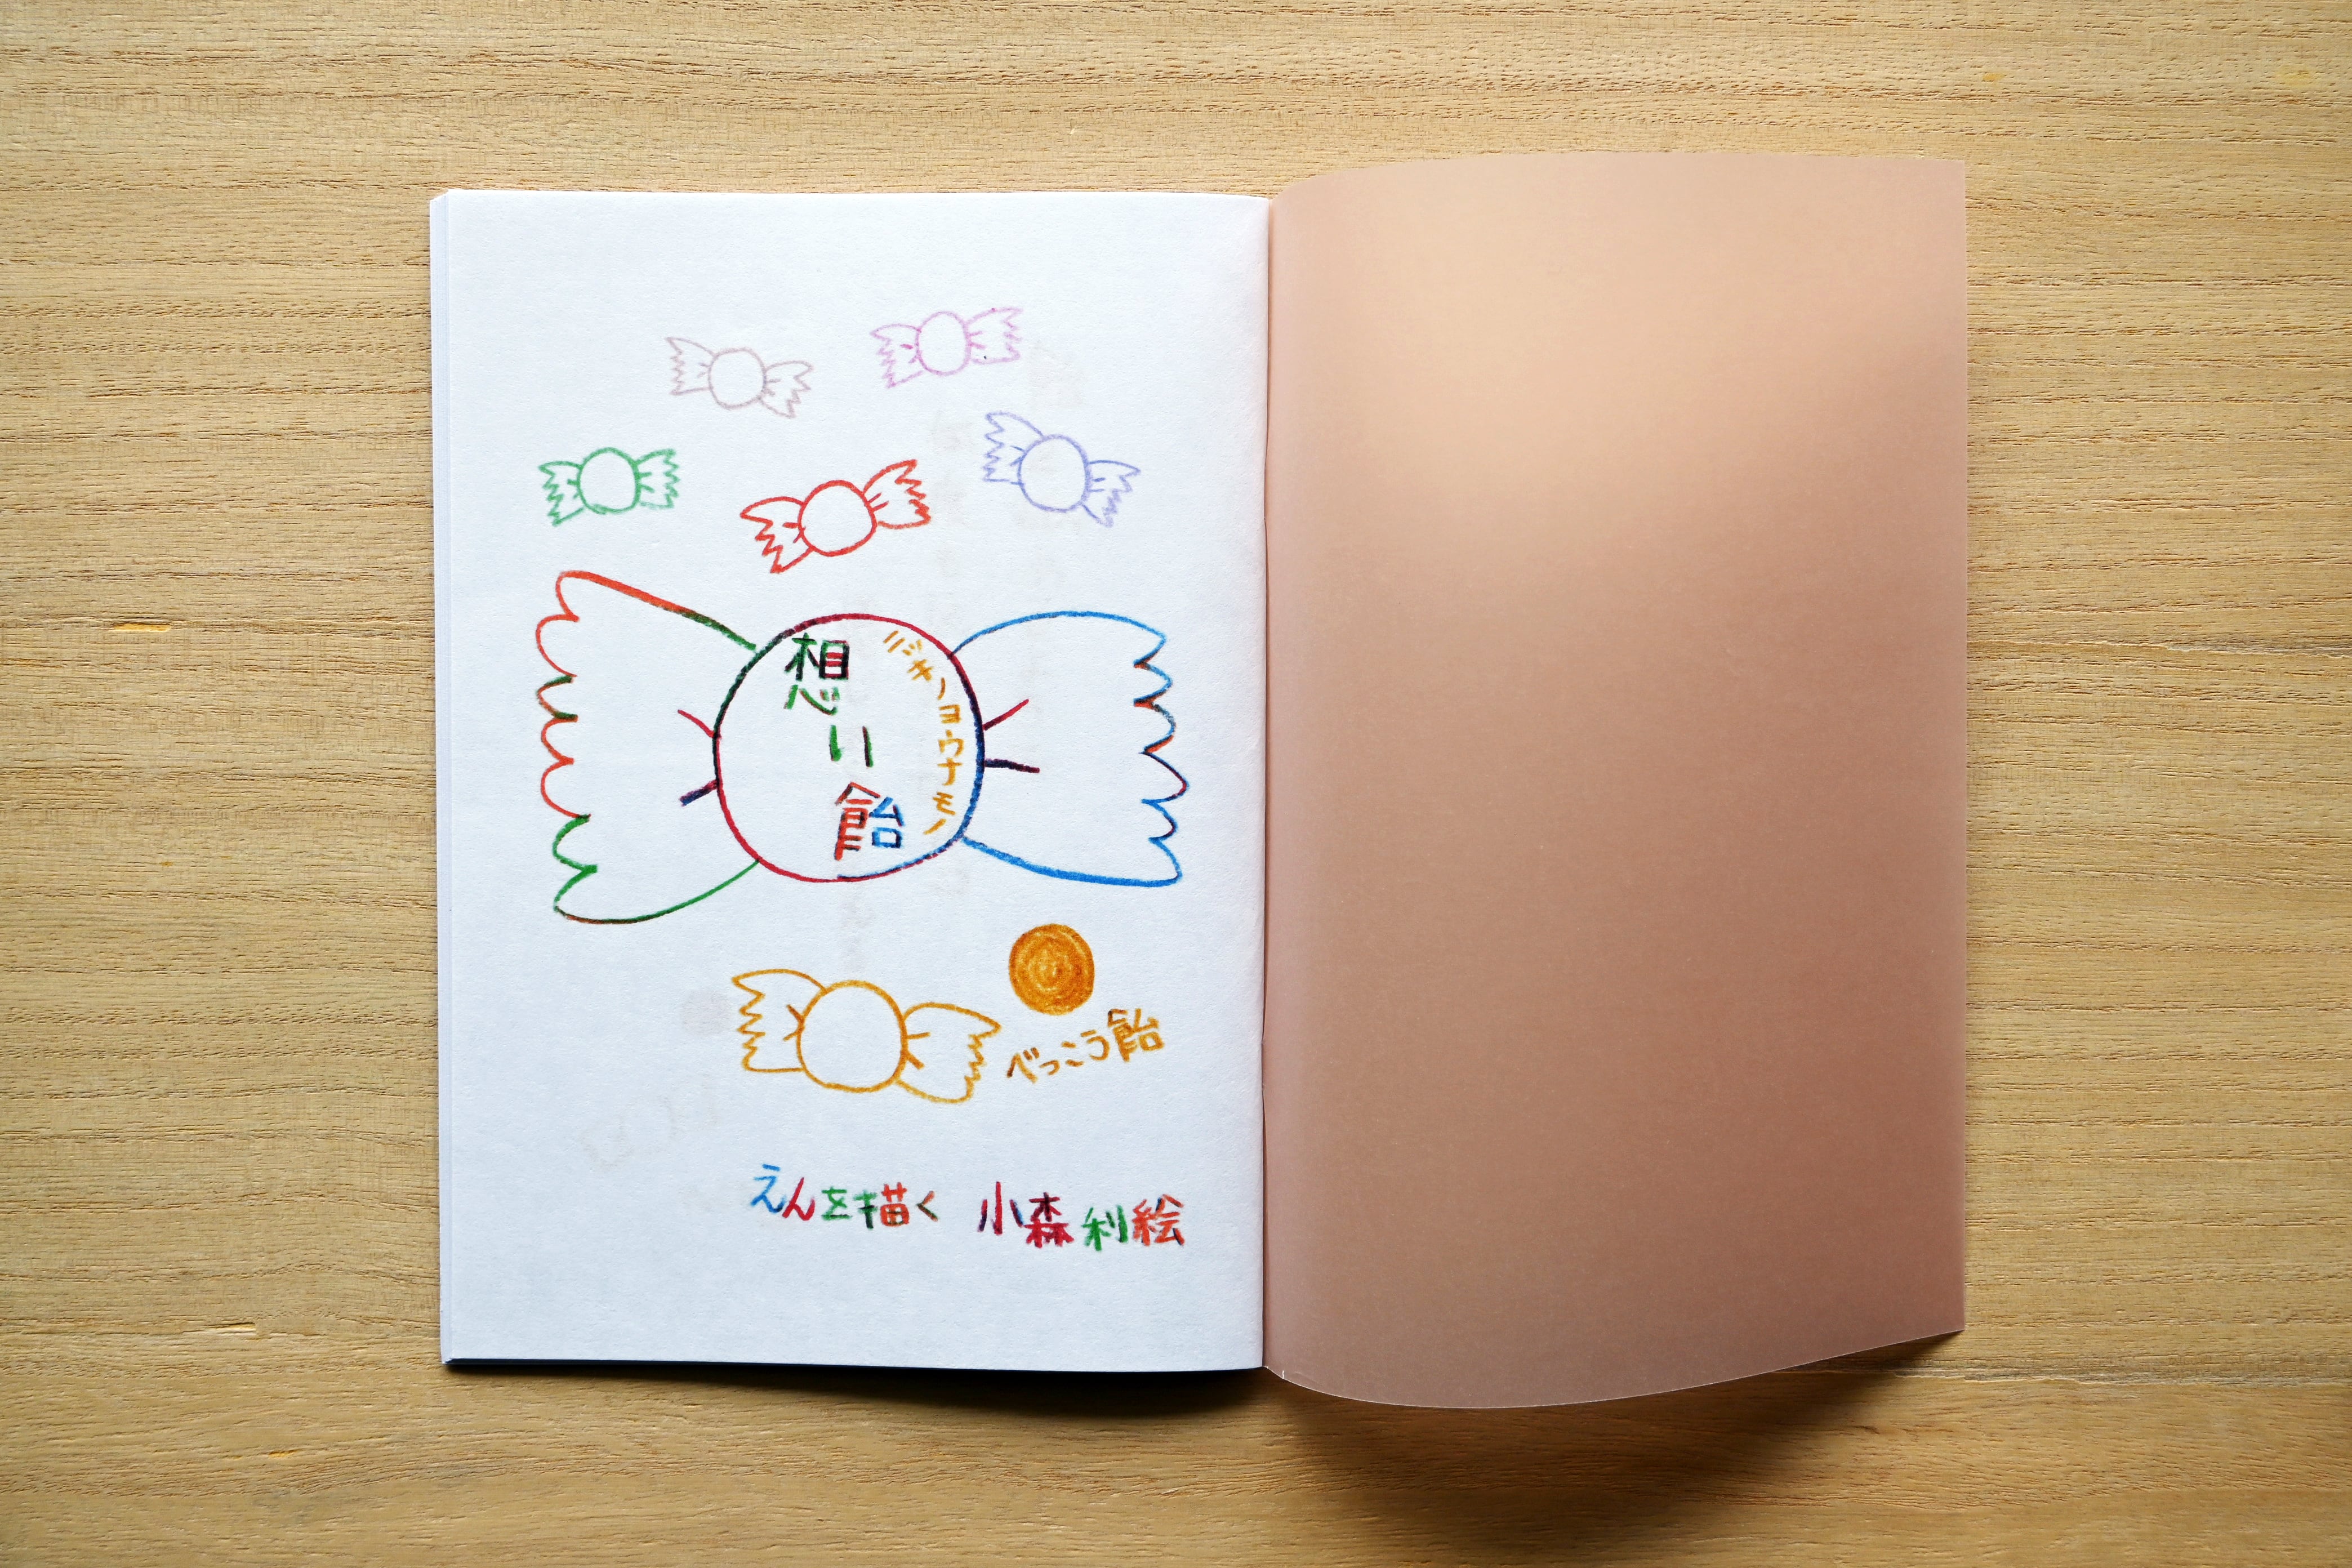 ニッキノヨウナモノ
想い飴
べっこう飴
えんを描く 小森利絵